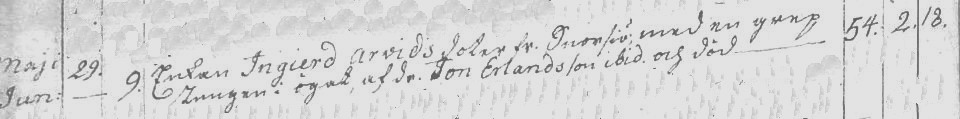 Maji 29. 9. Enkan Ingierd Arvids doter fr. Snorsiö, med en grep 54. 2. 18.
Jun: — stungen i ögat, af dr. Jon Erlandsson ibid. och död —